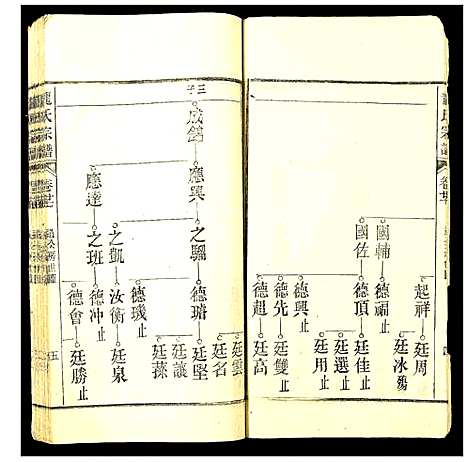 國輔
國佐
起祥
德福止
德頂
德興止
德光
德超
廷周
廷冰
殤
廷佳止
廷選止
廷用止
廷雙止
廷高
三子
成鴿
應興
應達
之騮
之凱
之班
德瑃
德璣止
汝衡
德冲止
德會
廷雲
廷名
廷堅
廷議
廷蓀
廷泉
廷勝止
龍氏宗譜
卷廿
五
氏宗譜
卷廿